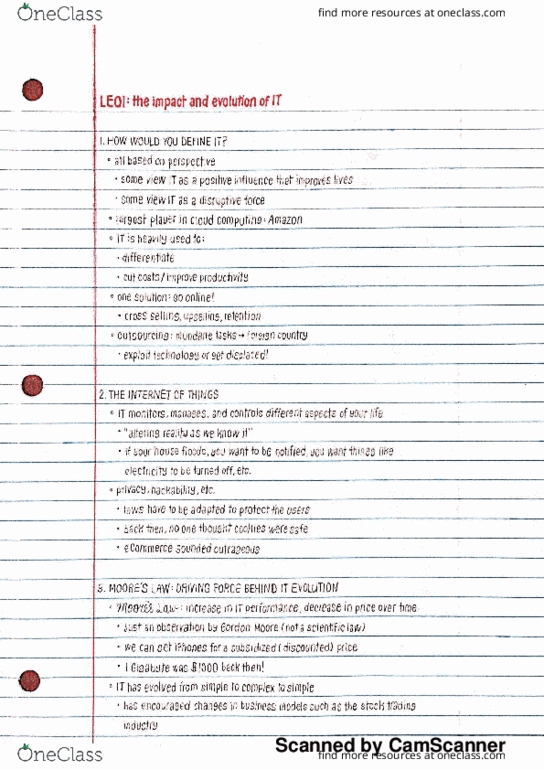 OneClass
find more resources at oneclass.com
LEC1: the impact and evolution of IT
1. HOW WOULD YOU DEFINE IT?
• all based on perspective
• some view IT as a positive influence that improves lives
• some view IT as a disruptive force
• largest player in cloud computing: Amazon
• IT is heavily used to:
• differentiate
• cut costs / improve productivity
• one solution: go online!
• cross selling, upselling, retention
• outsourcing: mundane tasks → foreign country
• exploit technology or get displaced!
2. THE INTERNET OF THINGS
• IT monitors, manages, and controls different aspects of your life
• "altering reality as we know it"
• if your house floods, you want to be notified, you want things like
electricity to be turned off, etc.
• privacy, hackability, etc.
• laws have to be adapted to protect the users
• back then, no one thought cookies were safe
• eCommerce sounded outrageous
3. MOORE'S LAW: DRIVING FORCE BEHIND IT EVOLUTION
• Moore's Law: increase in IT performance, decrease in price over time
• just an observation by Gordon Moore (not a scientific law)
• we can get iPhones for a subsidized (discounted) price
• 1 Gigabyte was $1000 back then!
• IT has evolved from simple to complex to simple
• has encouraged changes in business models such as the stock trading
industry
OneClass
Scanned by CamScanner
find more resources at oneclass.com